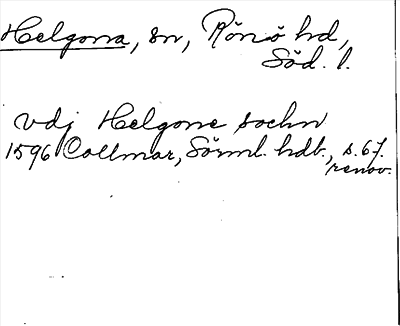 Helgona, sn, Rönö hd,
Söd. l.
vdj Helgone sochn
1596 Collmar, Sörml. hdb., s. 67.
renov.